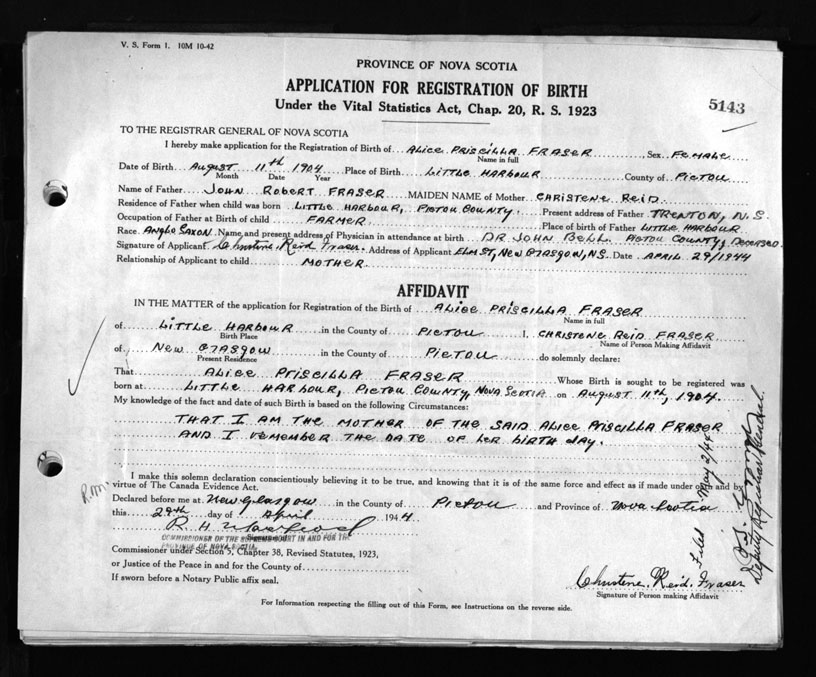 V. S. Form 1. 10M 10-42
PROVINCE OF NOVA SCOTIA
APPLICATION FOR REGISTRATION OF BIRTH
Under the Vital Statistics Act, Chap. 20, R. S. 1923
5143
TO THE REGISTRAR GENERAL OF NOVA SCOTIA
I hereby make application for the Registration of Birth of ALICE PRISCILLA FRASER Sex FEMALE
Name in full
Date of Birth AUGUST 11th 1904 Place of Birth LITTLE HARBOUR County of PICTOU
Month Date Year
Name of Father JOHN ROBERT FRASER MAIDEN NAME of Mother CHRISTENE REID
Residence of Father when child was born LITTLE HARBOUR, PICTOU COUNTY. Present address of Father TRENTON, N.S.
Occupation of Father at Birth of child FARMER Place of birth of Father LITTLE HARBOUR
Race ANGLO SAXON Name and present address of Physician in attendance at birth DR JOHN BELL PICTOU COUNTY, DECEASED.
Signature of Applicant Christene Reid Fraser. Address of Applicant ELM ST, NEW GLASGOW, N.S. Date APRIL 29/1944
Relationship of Applicant to child MOTHER
AFFIDAVIT
IN THE MATTER of the application for Registration of the Birth of ALICE PRISCILLA FRASER
Name in full
of LITTLE HARBOUR in the County of PICTOU I, CHRISTENE REID FRASER
Birth Place Name of Person Making Affidavit
of NEW GLASGOW in the County of PICTOU do solemnly declare:
Present Residence
That ALICE PRISCILLA FRASER Whose Birth is sought to be registered was
born at LITTLE HARBOUR, PICTOU COUNTY, NOVA SCOTIA on AUGUST 11th, 1904.
My knowledge of the fact and date of such Birth is based on the following Circumstances:
THAT I AM THE MOTHER OF THE SAID ALICE PRISCILLA FRASER
AND I REMEMBER THE DATE OF HER BIRTH DAY.
I make this solemn declaration conscientiously believing it to be true, and knowing that it is of the same force and effect as if made under oath and by
virtue of The Canada Evidence Act.
R.M.
Declared before me at New Glasgow in the County of Pictou and Province of Nova Scotia
this 29th day of April 1944
R. H.
COMMISSIONER OF THE SUPREME COURT IN AND FOR THE
PROVINCE OF NOVA SCOTIA
Commissioner under Section 5, Chapter 38, Revised Statutes, 1923,
or Justice of the Peace in and for the County of
If sworn before a Notary Public affix seal.
Christene Reid Fraser
Signature of Person making Affidavit
For Information respecting the filling out of this Form, see Instructions on the reverse side.
Filed May 2/44
Deputy Registrar General.